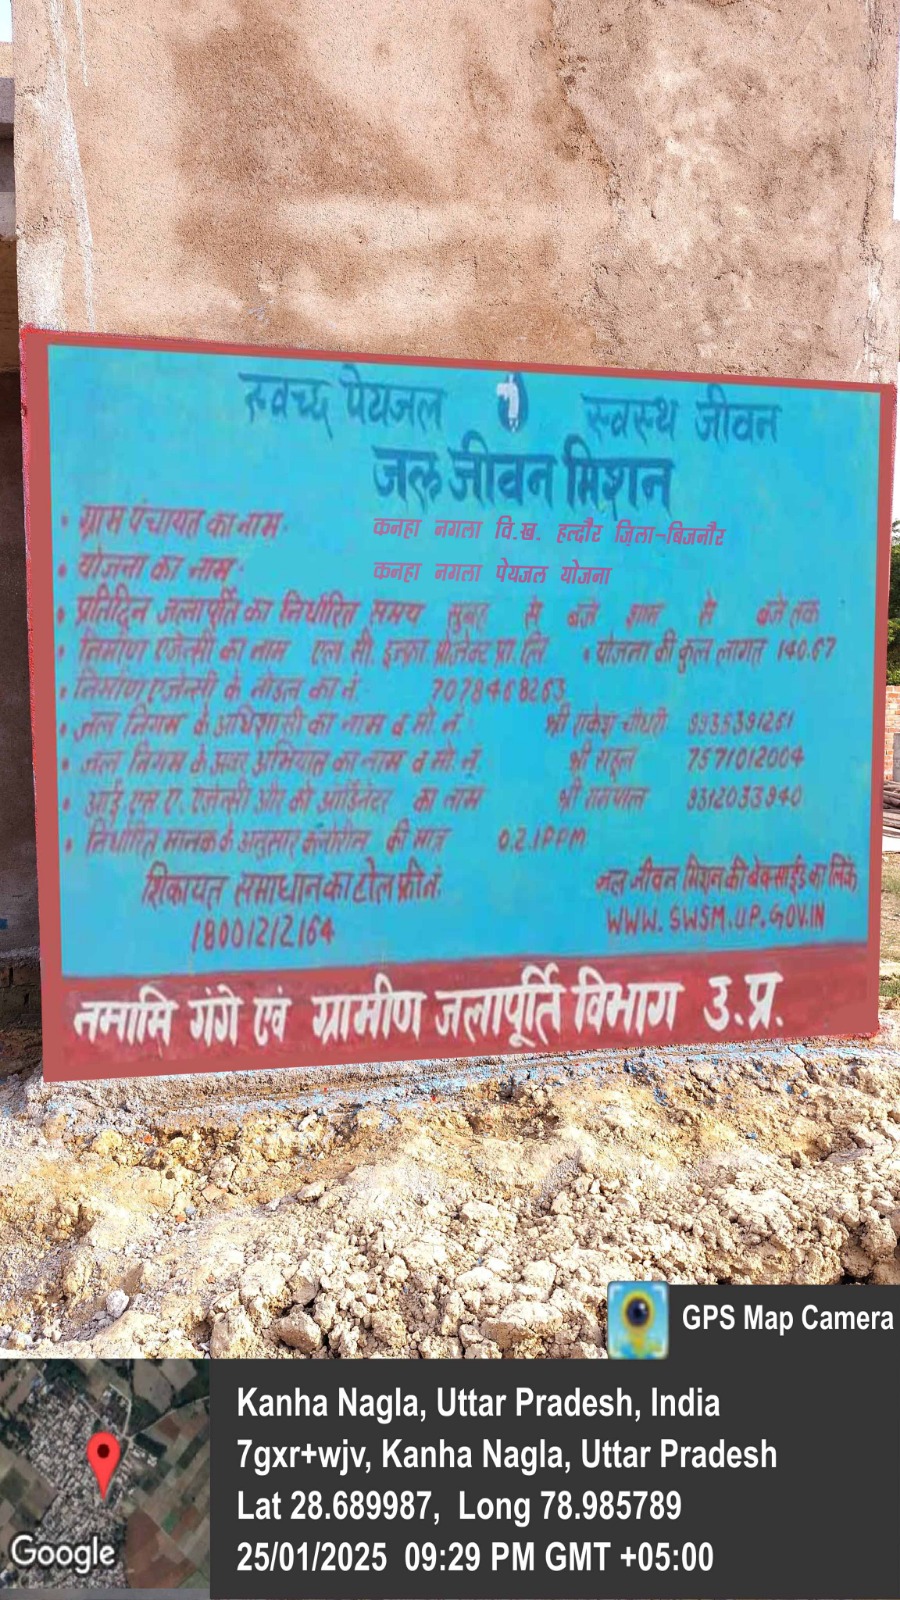 स्वच्छ पेयजल स्वस्थ जीवन
जल जीवन मिशन
• ग्राम पंचायत का नाम- कनहा नगला वि.ख. हल्दौर ज़िला-बिजनौर
• योजना का नाम- कनहा नगला पेयजल योजना
• प्रतिदिन जलापूर्ति का निर्धारित समय सुबह से बजे शाम से बजे तक
• निर्माण एजेन्सी का नाम एल.सी. इन्फ्रा प्रोजेक्ट प्रा.लि. • योजना की कुल लागत 140.67
• निर्माण एजेन्सी के नोडल का नं. 7078468263
• जल निगम के अधिशासी का नाम व मो. नं. श्री राकेश चौधरी
• जल निगम के अवर अभियन्ता का नाम व मो. नं. श्री राहुल 7571012004
• आई.एस.ए. एजेन्सी और को आर्डिनेटर का नाम श्री रामपाल
• निर्धारित मानक के अनुसार क्लोरीन की मात्र 0.2.1PPM
शिकायत समाधान का टोल फ्री नं.
18001212164
जल जीवन मिशन की वेबसाईड का लिंक
WWW.SWSM.UP.GOV.IN
नमामि गंगे एवं ग्रामीण जलापूर्ति विभाग उ.प्र.
GPS Map Camera
Kanha Nagla, Uttar Pradesh, India
7gxr+wjv, Kanha Nagla, Uttar Pradesh
Lat 28.689987, Long 78.985789
25/01/2025 09:29 PM GMT +05:00
Google